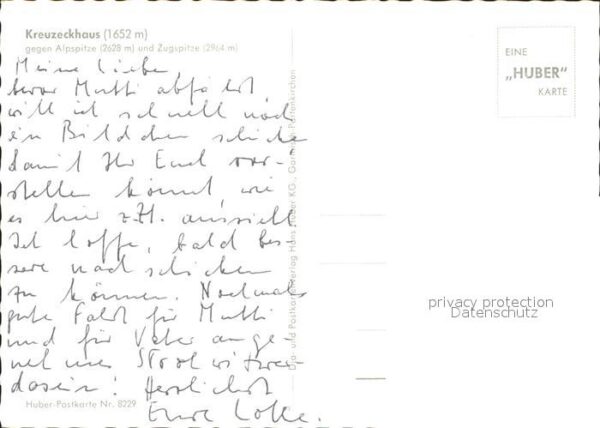 Kreuzeckhaus (1652 m)
gegen Alpspitze (2628 m) und Zugspitze (2964 m)
Meine Lieben,
bevor Mutti abfährt
will ich schnell noch
ein Bildchen schicken
damit Ihr Euch vor-
stellen könnt wie
es hier z.Zt. aussieht.
Ich hoffe, bald bes-
sere nachschicken
zu können. Nochmals
gute Fahrt für Mutti
und für Vater ange-
nehmes Strohwitwer-
dasein! Herzlichst
Eure Lotte.
Huber-Postkarte Nr. 8229
Foto- und Postkartenverlag Hans Huber KG., Garmisch-Partenkirchen
EINE
„HUBER"
KARTE
privacy protection
Datenschutz